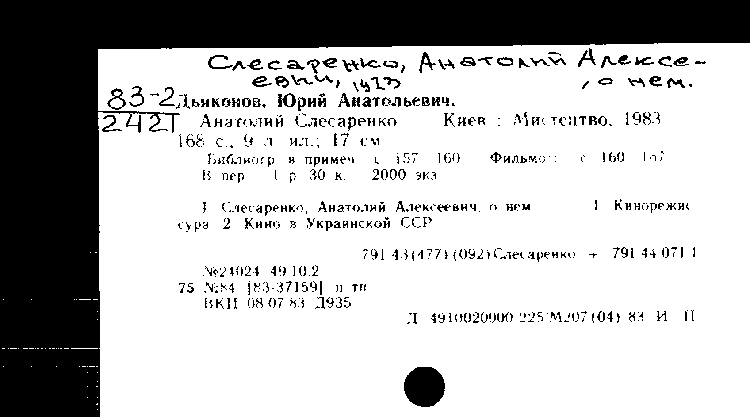 Слесаренко, Анатолий Алексе-
евич, 1923 , о нем.
83-2
242Т
Дьяконов, Юрий Анатольевич.
Анатолий Слесаренко Киев : Мистецтво, 1983
168 с., 9 л ил.; 17 см
Библиогр в примеч с 157 160 Фильмо с 160 167
В пер 1 р 30 к. 2000 экз
1 Слесаренко, Анатолий Алексеевич, о нем 1 Кинорежис
сура 2 Кино в Украинской ССР
791 43(477)(092)Слесаренко + 791 44 071 1
№24024 49.10.2
75 №84 [83-37159] п тп
ВКП 08 07 83 Д935
Д 4910020000 225 М207(04) 83 И П